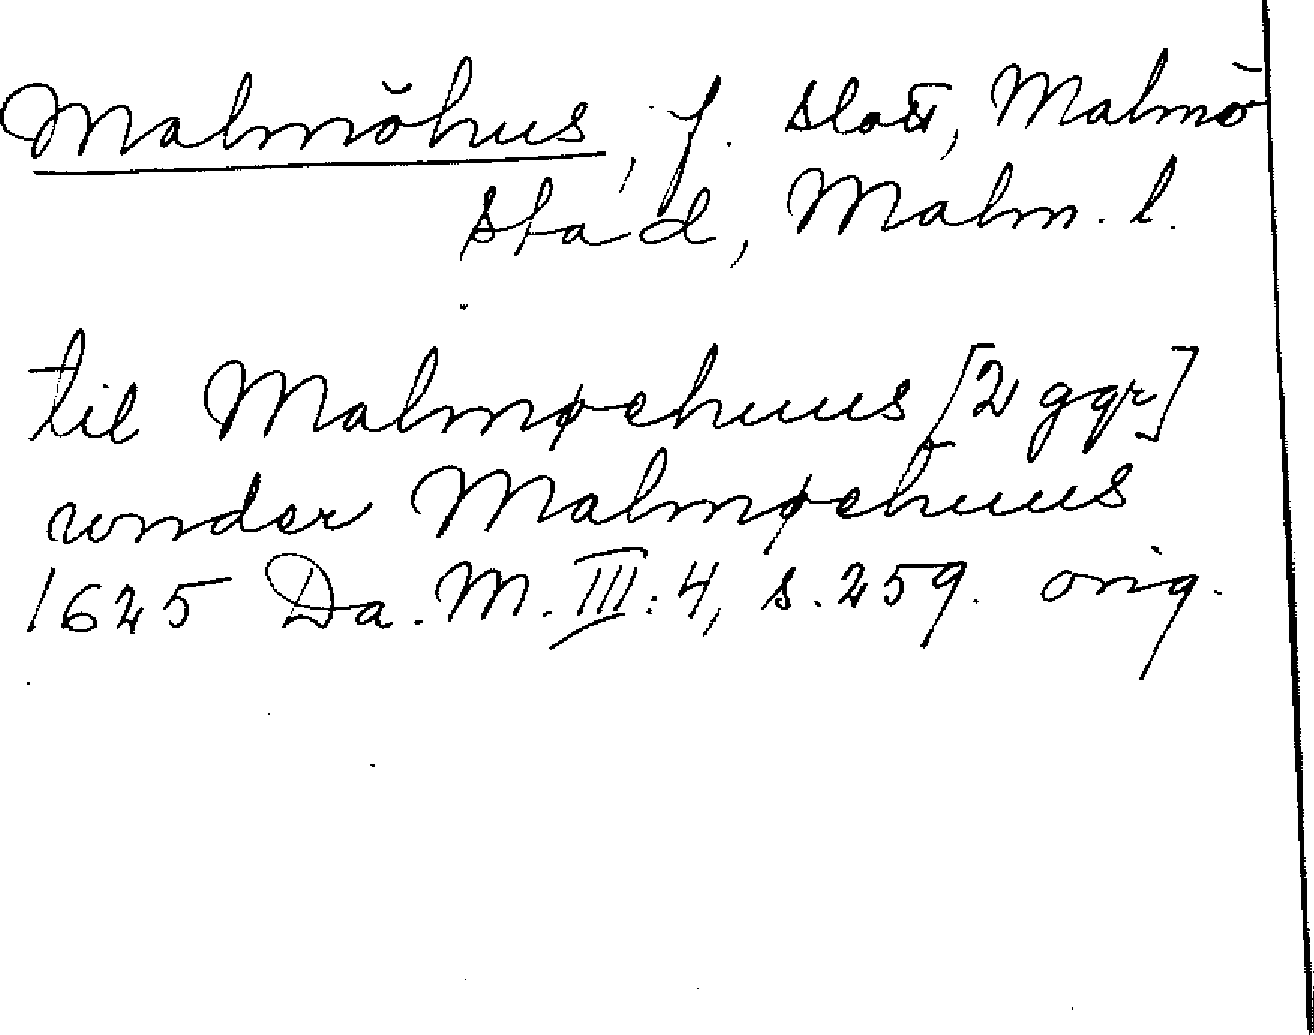 Malmöhus, f. slott, Malmö
stad, Malm. l.
til Malmøehuus [2 ggr]
wnder Malmøehuus
1625 Da. M. III: 4, s. 259. orig.